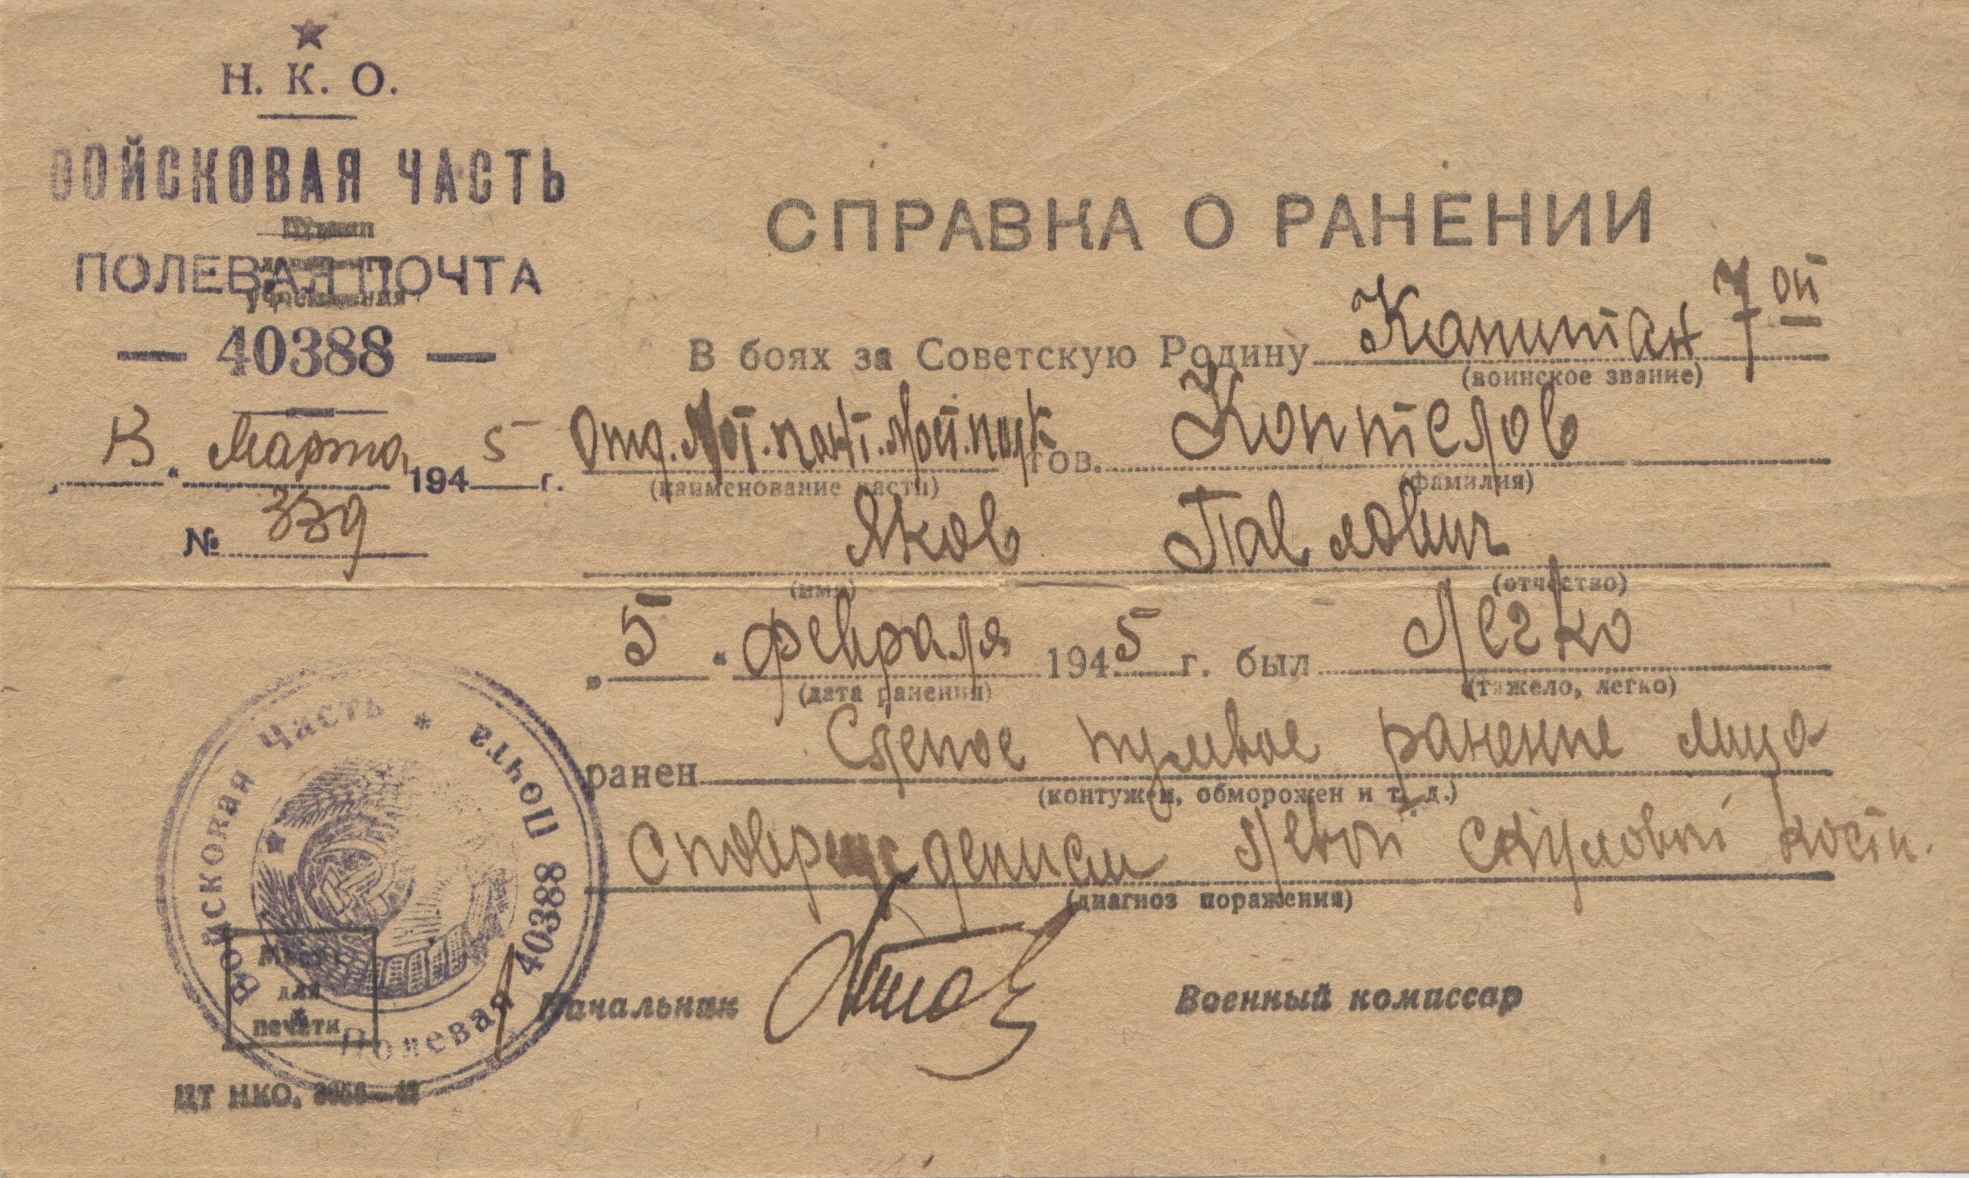 Н. К. О.
ВОЙСКОВАЯ ЧАСТЬ
ПОЛЕВАЯ ПОЧТА
— 40388 —
" Марта 1945 г.
№
СПРАВКА О РАНЕНИИ
В боях за Советскую Родину Капитан 7ой
(воинское звание)
Отд. Мот. понт. мост. полк тов. Коптелов
(наименование части) (фамилия)
Яков Павлович
(имя) (отчество)
„5" февраля 1945 г. был легко
(дата ранения) (тяжело, легко)
ранен Слепое пулевое ранение лица
(контужен, обморожен и т. д.)
с повреждением левой скуловой кости.
(диагноз поражения)
Начальник Военный комиссар
Войсковая Часть * Полевая Почта 40388
Место
для
печати
ЦТ НКО.